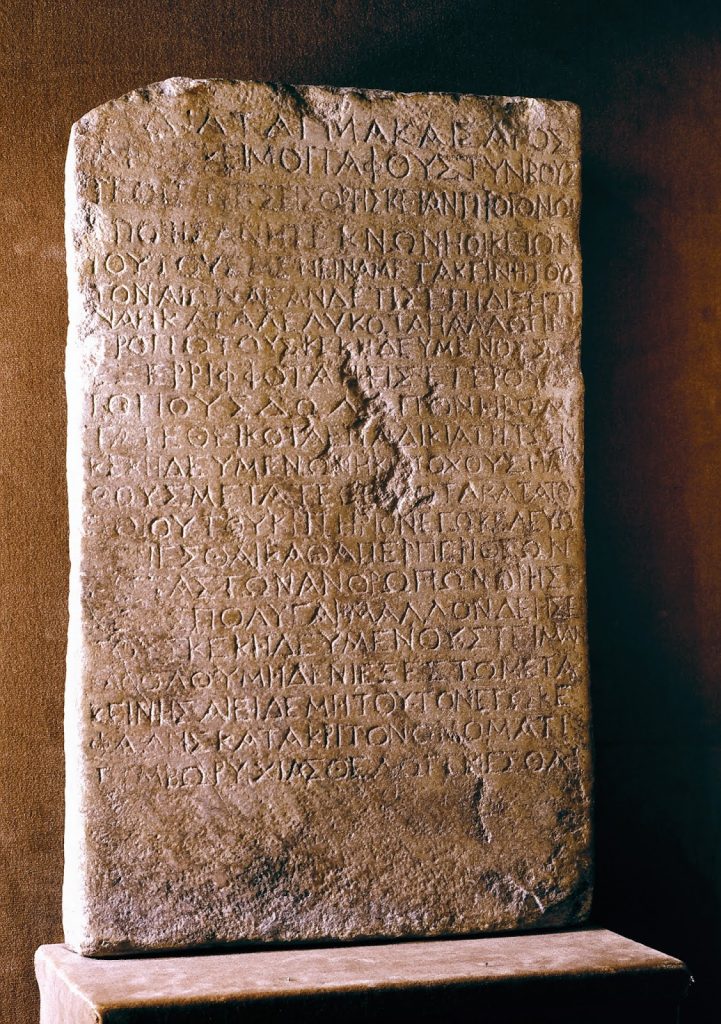 ΔΙΑΤΑΓΜΑ ΚΑΙΣΑΡΟΣ
ΑΡΕΣΚΕΙ ΜΟΙ ΤΑΦΟΥΣ ΤΥΝΒΟΥΣ
ΤΕ ΟΙΤΙΝΕΣ ΕΙΣ ΘΡΗΣΚΕΙΑΝ ΠΡΟΓΟΝΩΝ
ΕΠΟΙΗΣΑΝ Η ΤΕΚΝΩΝ Η ΟΙΚΕΙΩΝ
ΤΟΥΤΟΥΣ ΜΕΝΕΙΝ ΑΜΕΤΑΚΕΙΝΗΤΟΥΣ
ΤΟΝ ΑΙΩΝΑ ΕΑΝ ΔΕ ΤΙΣ ΕΠΙΔΙΞΗ ΤΙ
ΝΑ Η ΚΑΤΑΛΕΛΥΚΟΤΑ Η ΑΛΛΩ ΤΙΝΙ
ΤΡΟΠΩ ΤΟΥΣ ΚΕΚΗΔΕΥΜΕΝΟΥΣ
ΕΞΕΡΡΙΦΦΟΤΑ Η ΕΙΣ ΕΤΕΡΟΥΣ
ΤΟΠΟΥΣ ΔΩΛΩ ΠΟΝΗΡΩ ΜΕ
ΤΑΤΕΘΕΙΚΟΤΑ ΕΠ ΑΔΙΚΙΑ ΤΗ ΤΩΝ
ΚΕΚΗΔΕΥΜΕΝΩΝ Η ΚΑΤΟΧΟΥΣ Η ΛΙ
ΘΟΥΣ ΜΕΤΑΤΕΘΕΙΚΟΤΑ ΚΑΤΑ ΤΟΥ
ΤΟΙΟΥΤΟΥ ΚΡΙΤΗΡΙΟΝ ΕΓΩ ΚΕΛΕΥΩ
ΓΕΝΕΣΘΑΙ ΚΑΘΑΠΕΡ ΠΕΡΙ ΘΕΩΝ
ΕΣ ΤΑΣ ΤΩΝ ΑΝΘΡΩΠΩΝ ΘΡΗΣ
ΚΙΑΣ ΠΟΛΥ ΓΑΡ ΜΑΛΛΟΝ ΔΕΗΣΕΙ
ΤΟΥΣ ΚΕΚΗΔΕΥΜΕΝΟΥΣ ΤΕΙΜΑΝ
ΚΑΘΟΛΟΥ ΜΗΔΕΝΙ ΕΞΕΣΤΩ ΜΕΤΑ
ΚΕΙΝΗΣΑΙ ΕΙ ΔΕ ΜΗ ΤΟΥΤΟΝ ΕΓΩ ΚΕ
ΦΑΛΗΣ ΚΑΤΑΚΡΙΤΟΝ ΟΝΟΜΑΤΙ
ΤΥΜΒΩΡΥΧΙΑΣ ΘΕΛΩ ΓΕΝΕΣΘΑΙ